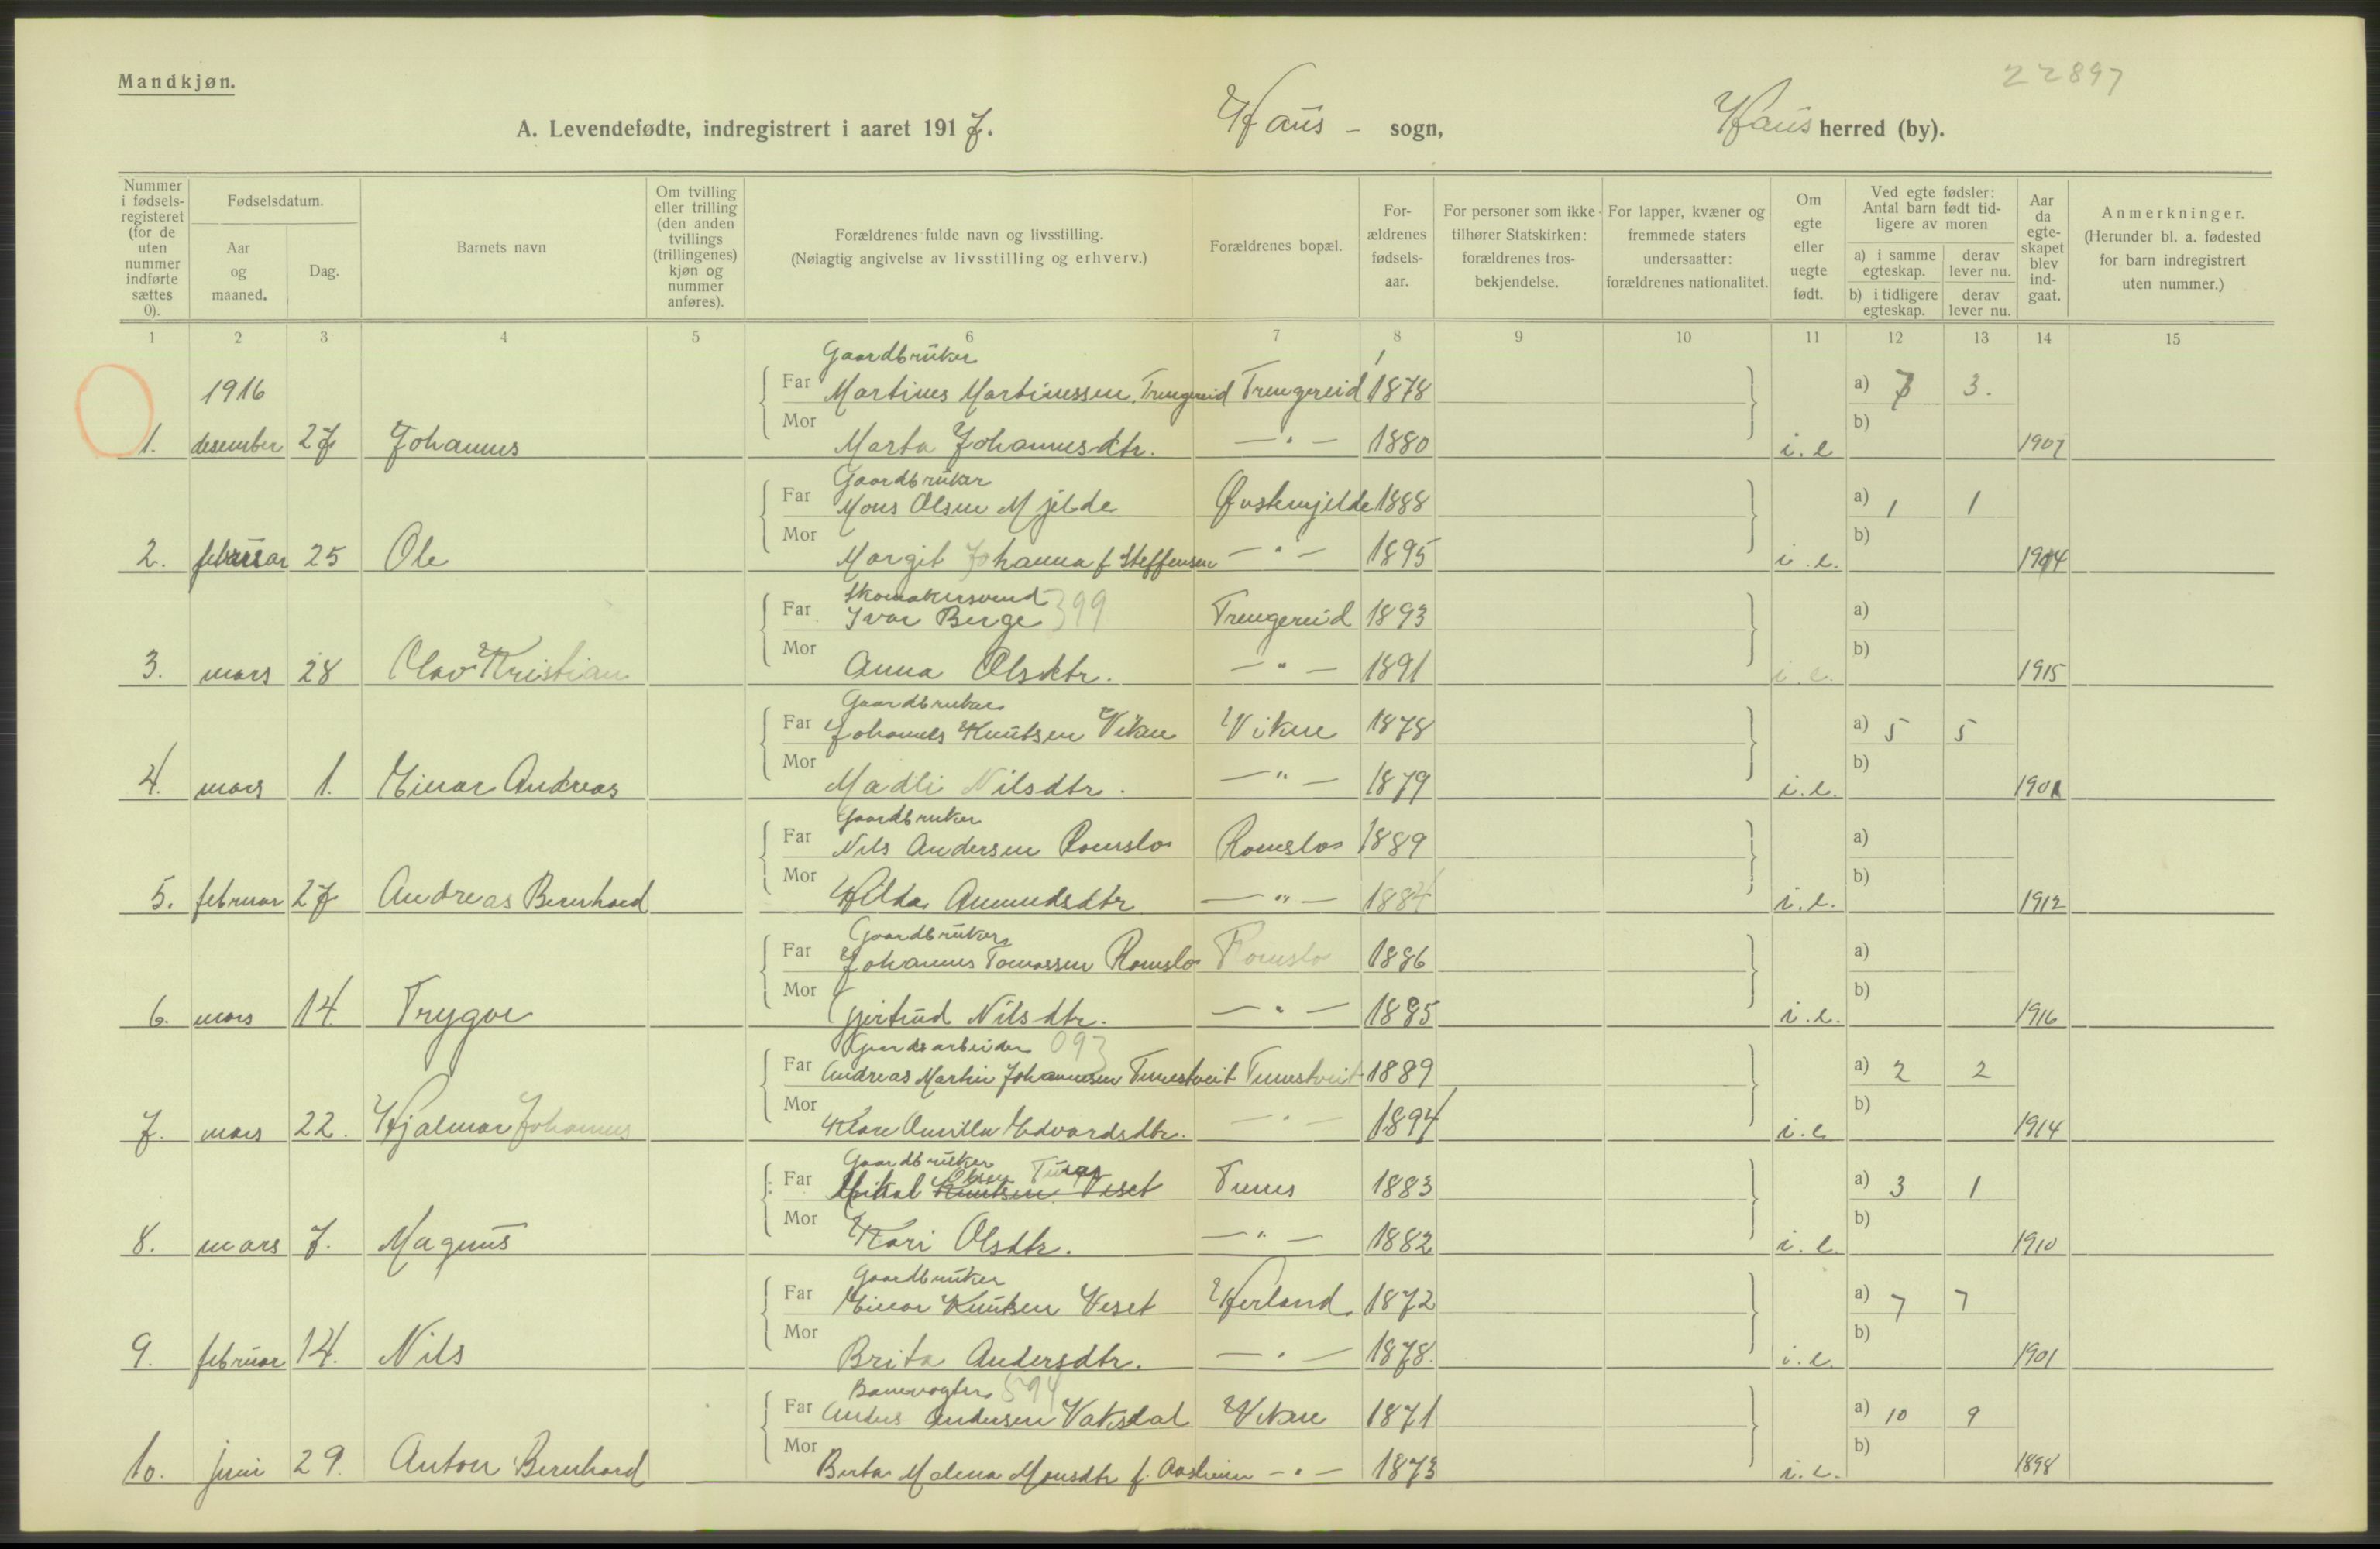 22897
Mandkjøn.
A. Levendefødte, indregistrert i aaret 1917. Haus - sogn, Haus herred (by).
Nummer i fødsels-registeret (for de uten nummer indførte sættes 0).
Fødselsdatum.
Aar og maaned.
Dag.
Barnets navn
Om tvilling eller trilling (den anden tvillings (trillingenes) kjøn og nummer anføres).
Forældrenes fulde navn og livsstilling.
(Nøiagtig angivelse av livsstilling og erhverv.)
Forældrenes bopæl.
For-ældrenes fødsels-aar.
For personer som ikke tilhører Statskirken: forældrenes tros-bekjendelse.
For lapper, kvæner og fremmede staters undersaatter: forældrenes nationalitet.
Om egte eller uegte født.
Ved egte fødsler: Antal barn født tid-ligere av moren
a) i samme egteskap. derav lever nu.
b) i tidligere egteskap. derav lever nu.
Aar da egte-skapet blev ind-gaat.
Anmerkninger.
(Herunder bl. a. fødested for barn indregistrert uten nummer.)
1 2 3 4 5 6 7 8 9 10 11 12 13 14 15
Gaardbruker
1916 Far Martines Martinessen Trengereid Trengereid 1878 a) 3 3.
Mor b)
1. desember 27 Johannes Marta Johannesdtr. — " — 1880 i. e 1907
Gaardbruker
Far Mons Olsen Mjelde Øvstemjelde 1888 a) 1 1
Mor b)
2. februar 25 Ole Margit Johanna f Steffensen — " — 1895 i. e. 1914
Skomakersvend 399
Far Ivar Berge Trengereid 1893 a)
Mor b)
3. mars 28 Olav Kristian Anna Olsdtr. — " — 1891 i. e. 1915
Gaardbruker
Far Johannes Knutsen Vikne Vikne 1878 a) 5 5
Mor b)
4. mars 1. Einar Andreas Madli Nilsdtr. — " — 1879 i. e. 1901
Gaardbruker
Far Nils Andersen Romslo Romslo 1889 a)
Mor b)
5. februar 27 Andreas Bernhard Hilda Amundsdtr — " — 1884 i. e. 1912
Gaardbruker
Far Johannes Tomassen Romslo Romslo 1886 a)
Mor b)
6. mars 14. Trygve Gjertrud Nilsdtr. — " — 1885 i. e. 1916
Gaardsarbeider 093
Far Andreas Martin Johannesen Tunestveit Tunestveit 1889 a) 2 2
Mor b)
7. mars 22. Hjalmar Johannes Edvardsdtr. — " — 1894 i. e 1914
Gaardbruker
Olsen Tunes
Far Mikal Knutsen Veset Tunes 1883 a) 3 1
Mor b)
8. mars 7. Magnus Kari Olsdtr. — " — 1882 i. e. 1910
Gaardbruker
Far Einar Knutsen Veset Herland 1872 a) 7 7
Mor b)
9. februar 14. Nils Brita Andersdtr. — " — 1878. i. e. 1901
Banevogter 594
Far Anders Andersen Vaksdal Vikne 1871 a) 10 9
Mor b)
10. juni 29. Anton Bernhard Berta Malena Monsdtr f. Aasheim — " — 1873 i. e. 1898